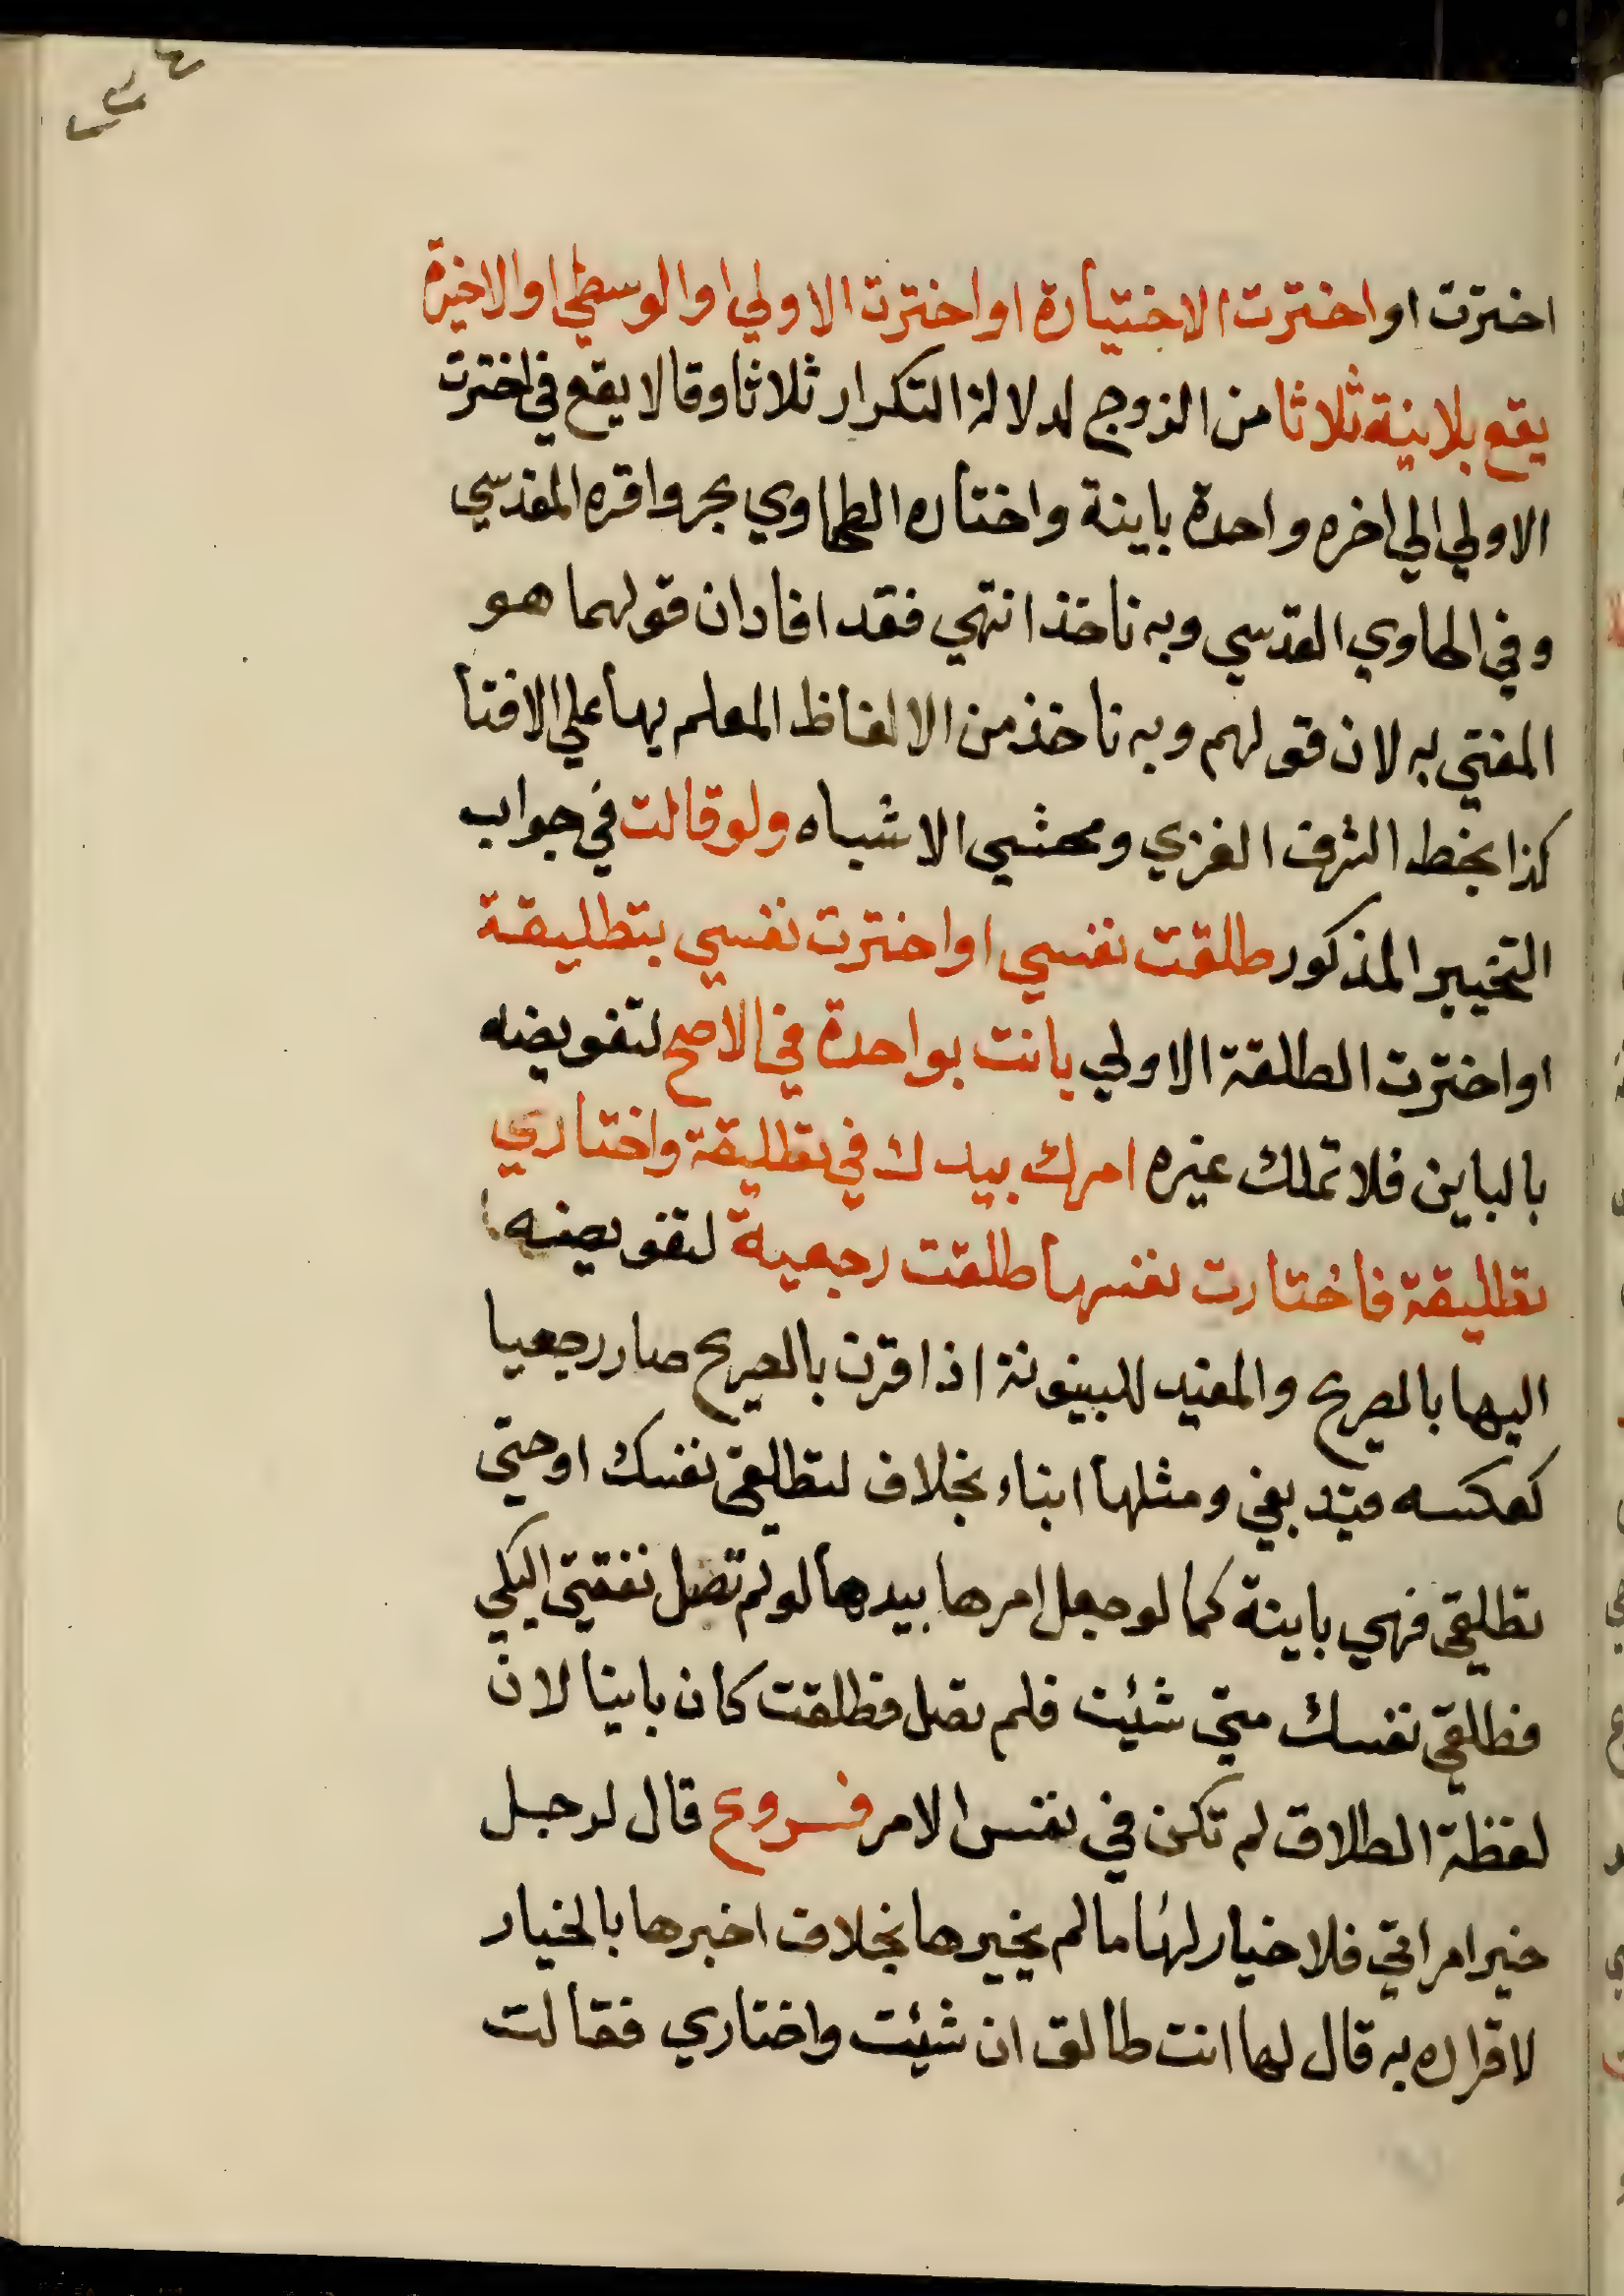 اخترت او اخترت الاختيارة او اخترت الاولي او الوسطي او الاخيرة
يقع بلانية ثلاثا من الزوج لدلالة التكرار ثلاثا وقالا يقع في اخترت
الاولي الي اخره واحدة باينة واختاره الطحاوي بحر واقره المقدسي
وفي الحاوي القدسي وبه ناخذ انتهي فقد افاد ان قولهما هو
المفتي به لان قولهم وبه ناخذ من الالفاظ المعلم بها علي الافتا
كذا بخط الشرف الغزي ومحشي الاشباه ولو قالت في جواب
التخيير المذكور طلقت نفسي او اخترت نفسي بتطليقة
او اخترت الطلقة الاولي بانت بواحدة في الاصح لتفويضه
بالباين فلا تملك غيره امرك بيدك في تطليقة واختاري
تطليقة فاختارت نفسها طلقت رجعية لتفويضه
اليها بالصريح والمفيد للبينونة اذا قرن بالصريح صار رجعيا
كعكسه قيد بفي ومثلها ابناء بخلاف لتطلقي نفسك او حتي
تطلقي فهي باينة كما لو جعل امرها بيدها لو لم تصل نفقتي اليكي
فطلقي نفسك متي شئت فلم تصل فطلقت كان باينا لان
لفظة الطلاق لم تكن في نفس الامر فروع قال لرجل
خير امراتي فلا خيار لها ما لم يخيرها بخلاف اخبرها بالخيار
لاقراره به قال لها انت طالق ان شئت واختاري فقالت